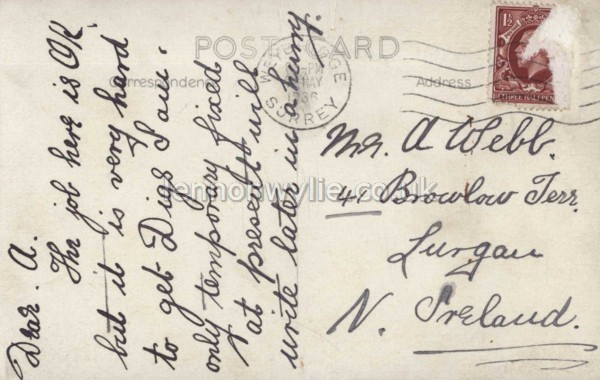 POST CARD
Correspondence
Address
WEYBRIDGE
SURREY
PM
MAY
36
1½
THREE HALFPENCE
Dear. A.
The job here is OK
but it is very hard
to get Digs I am.
only temporary fixed
at present will
write later in a hurry.
Mr. A Webb.
41 Browlow Terr.
Lurgan
N. Ireland.
lennonwylie.co.uk